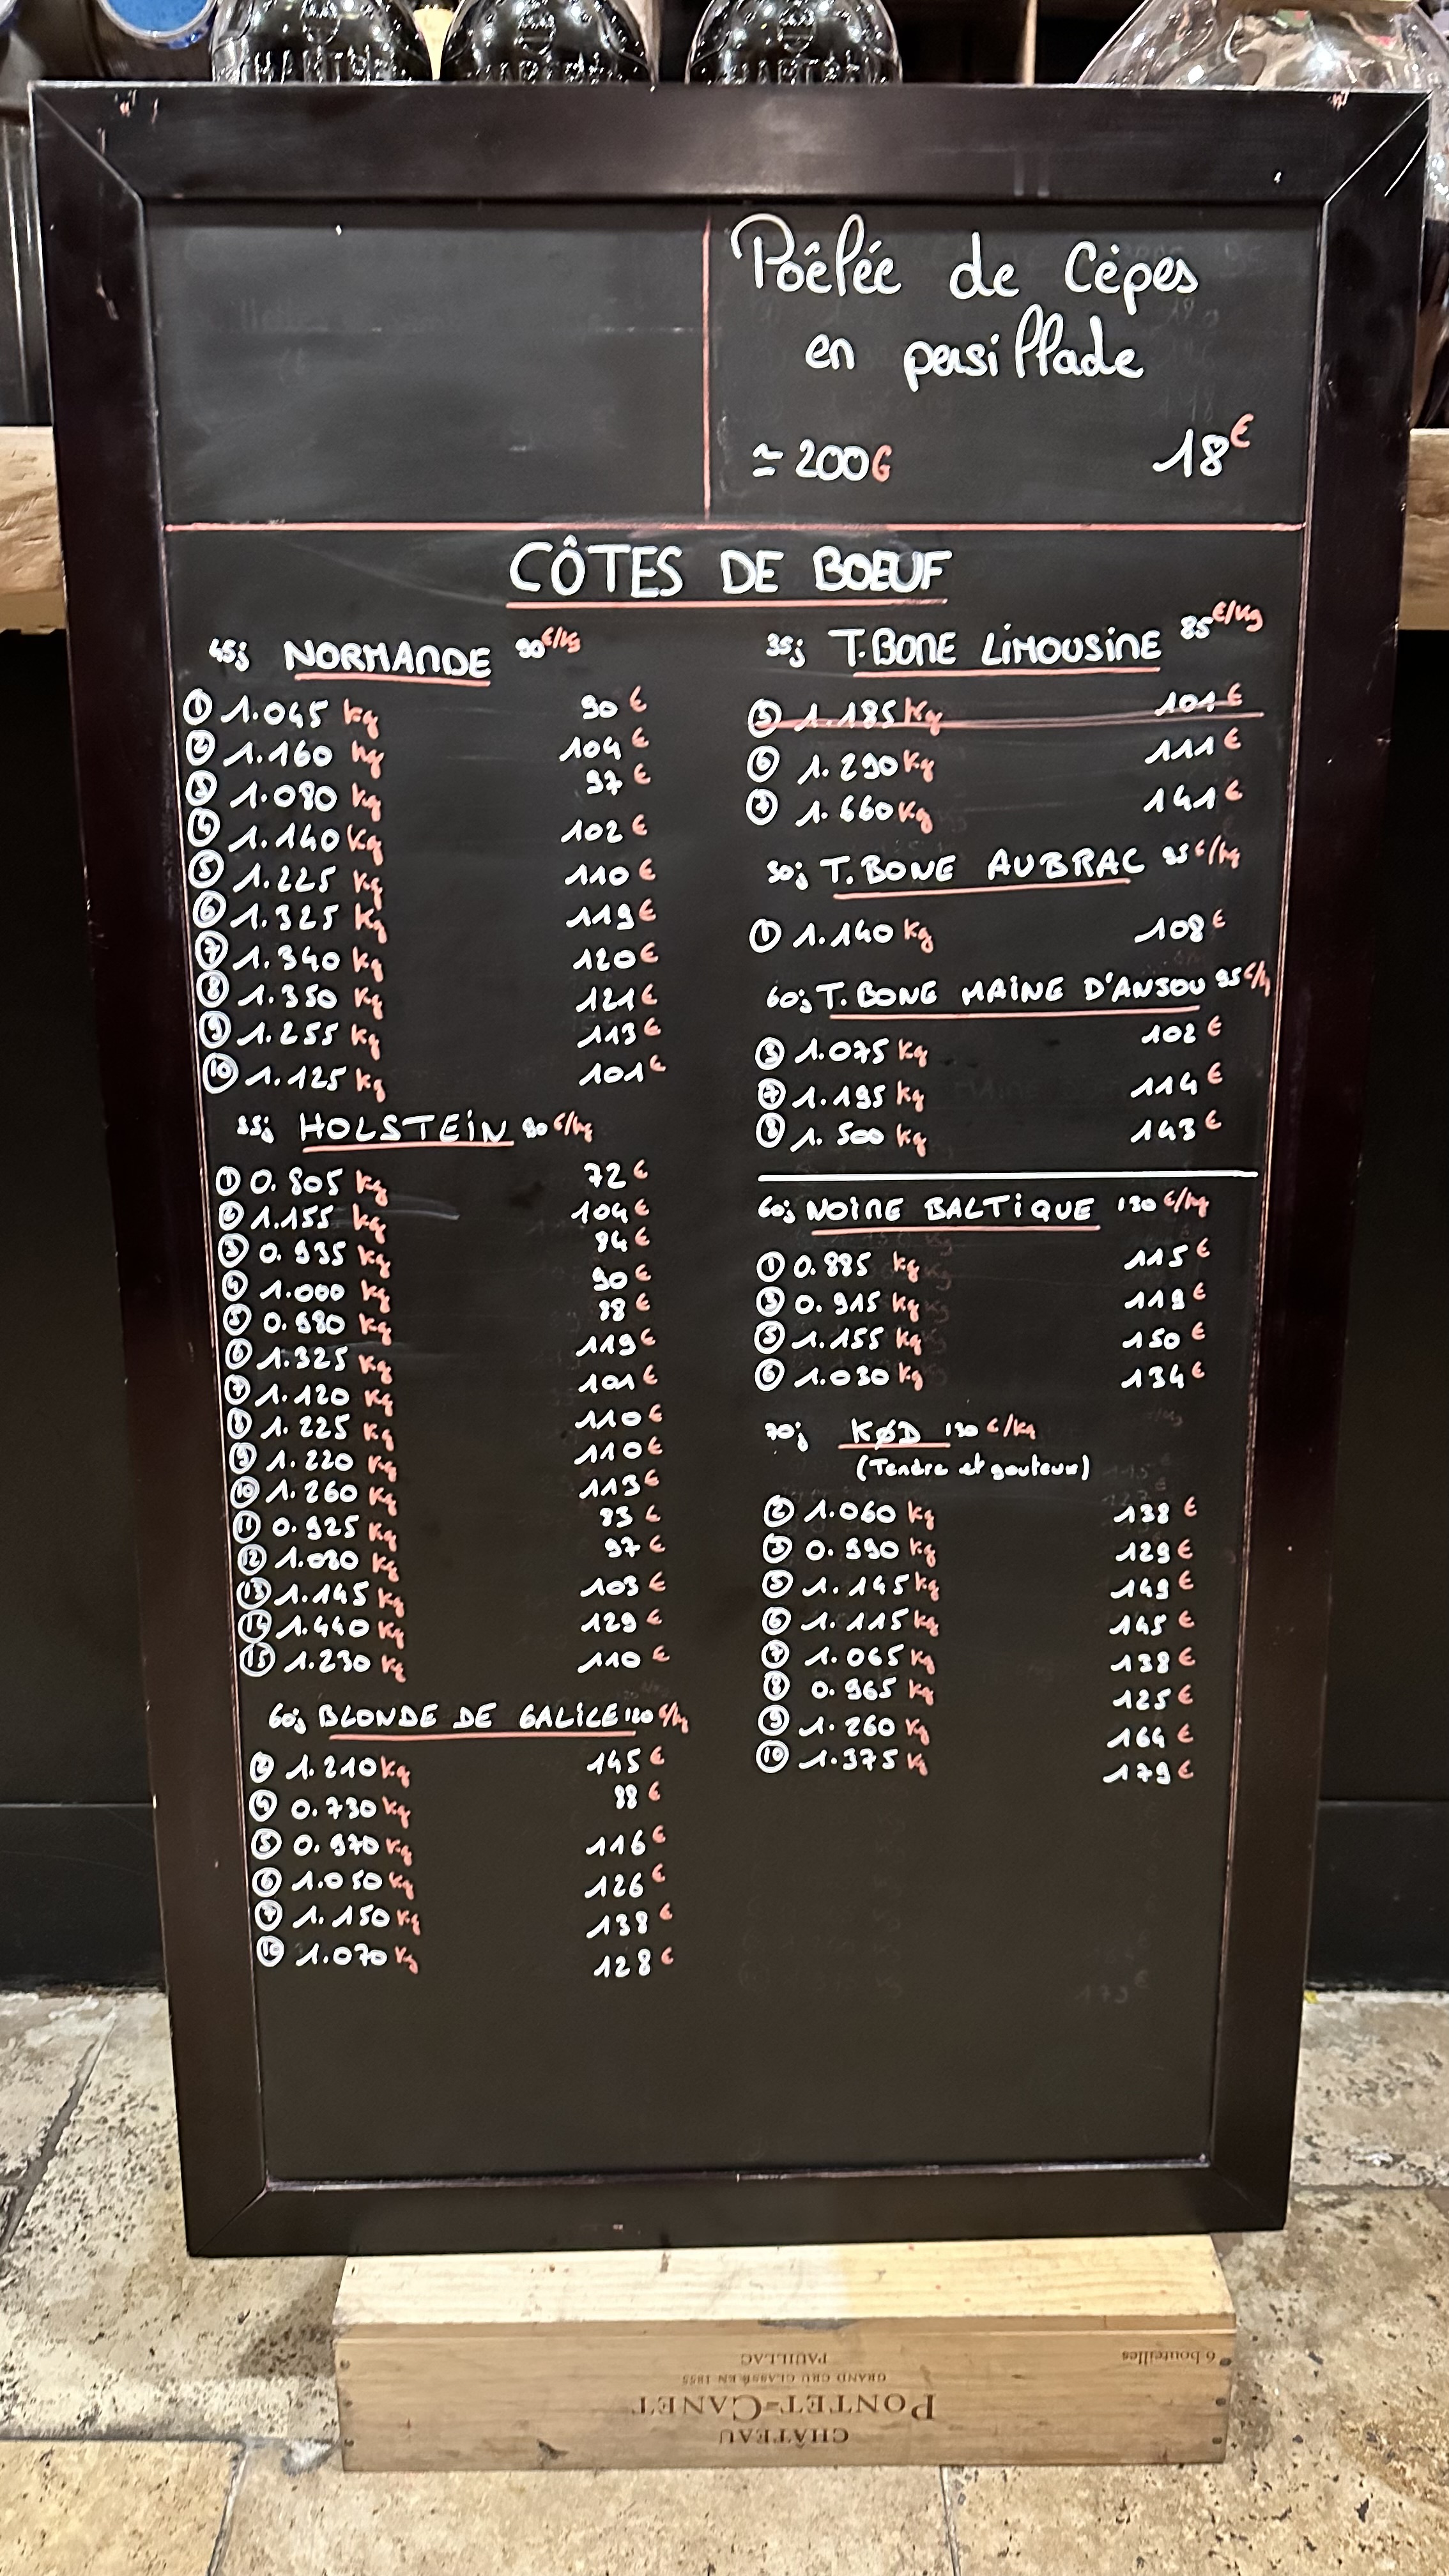 Poêlée de Cèpes
en persillade
≃ 200G 18€
CÔTES DE BOEUF
45j NORMANDE 90€/kg
① 1.045 kg 90 €
② 1.160 kg 104 €
③ 1.080 kg 97 €
④ 1.140 kg 102 €
⑤ 1.225 kg 110 €
⑥ 1.325 kg 119 €
⑦ 1.340 kg 120 €
⑧ 1.350 kg 121 €
⑨ 1.255 kg 113 €
⑩ 1.125 kg 101 €
HOLSTEIN 90 €/kg
① 0.805 kg 72 €
② 1.155 kg 104 €
③ 0.935 kg 84 €
④ 1.000 kg 90 €
⑤ 0.980 kg 88 €
⑥ 1.325 kg 119 €
⑦ 1.120 kg 101 €
⑧ 1.225 kg 110 €
⑨ 1.220 kg 110 €
⑩ 1.260 kg 113 €
⑪ 0.925 kg 83 €
⑫ 1.080 kg 97 €
⑬ 1.145 kg 103 €
⑭ 1.440 kg 129 €
⑮ 1.230 kg 110 €
60j BLONDE DE GALICE 120 €/kg
② 1.210 kg 145 €
④ 0.730 kg 88 €
⑤ 0.970 kg 116 €
⑥ 1.050 kg 126 €
⑦ 1.150 kg 138 €
⑩ 1.070 kg 128 €
35j T.BONE LIMOUSINE 85€/kg
⑤ 1.185 kg 101 €
⑥ 1.290 kg 111 €
⑦ 1.660 kg 141 €
T.BONE AUBRAC 95 €/kg
① 1.140 kg 108 €
60j T.BONE MAINE D'ANJOU 95 €/kg
③ 1.075 kg 102 €
⑦ 1.195 kg 114 €
⑧ 1.500 kg 143 €
60j NOIRE BALTIQUE 130 €/kg
① 0.885 kg 115 €
③ 0.915 kg 119 €
⑤ 1.155 kg 150 €
⑥ 1.030 kg 134 €
70j KØD 130 €/kg
(Tendre et gouteux)
② 1.060 kg 138 €
③ 0.990 kg 129 €
⑤ 1.145 kg 149 €
⑥ 1.115 kg 145 €
⑦ 1.065 kg 138 €
⑧ 0.965 kg 125 €
⑨ 1.260 kg 164 €
⑩ 1.375 kg 179 €
CHÂTEAU
PONTET-CANET
GRAND CRU CLASSÉ EN 1855
PAUILLAC
6 bouteilles